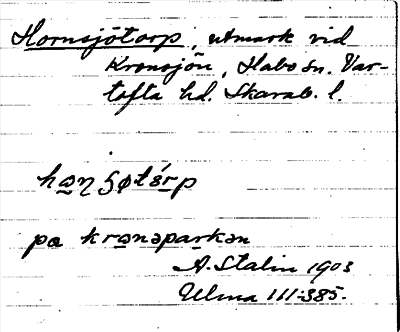 Hornsjötorp, utmark vid
Kronsjön, Habo sn. Var-
tofta hd. Skarab. l.
hɑɳʂøtǝ́rp
pa krɷnǝparkǝn
A. Stalin 1903
Ulma 111:385.